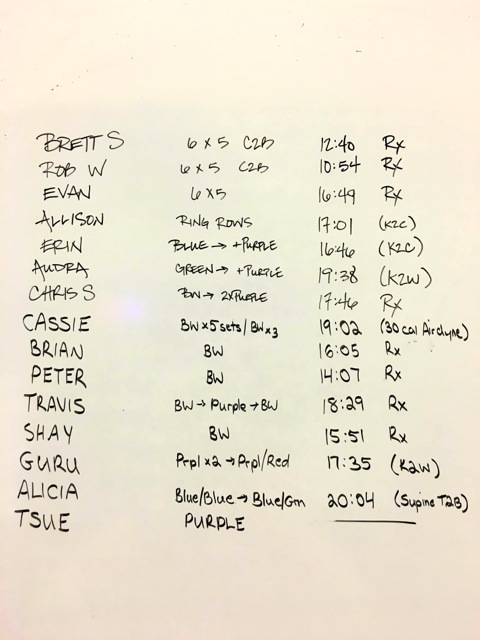 BRETT S 6 x 5 C2B 12:40 Rx
ROB W 6 x 5 C2B 10:54 Rx
EVAN 6 x 5 16:49 Rx
ALLISON RING ROWS 17:01 (K2C)
ERIN BLUE → +PURPLE 16:46 (K2C)
AUDRA GREEN → +PURPLE 19:38 (K2W)
CHRIS S BW → 2xPURPLE 17:46 Rx
CASSIE BW x 5 sets / BW x 3 19:02 (30 cal Airdyne)
BRIAN BW 16:05 Rx
PETER BW 14:07 Rx
TRAVIS BW → Purple → BW 18:29 Rx
SHAY BW 15:51 Rx
GURU Prpl x2 → Prpl/Red 17:35 (K2W)
ALICIA Blue/Blue → Blue/Grn 20:04 (Supine T2B)
TSUE PURPLE